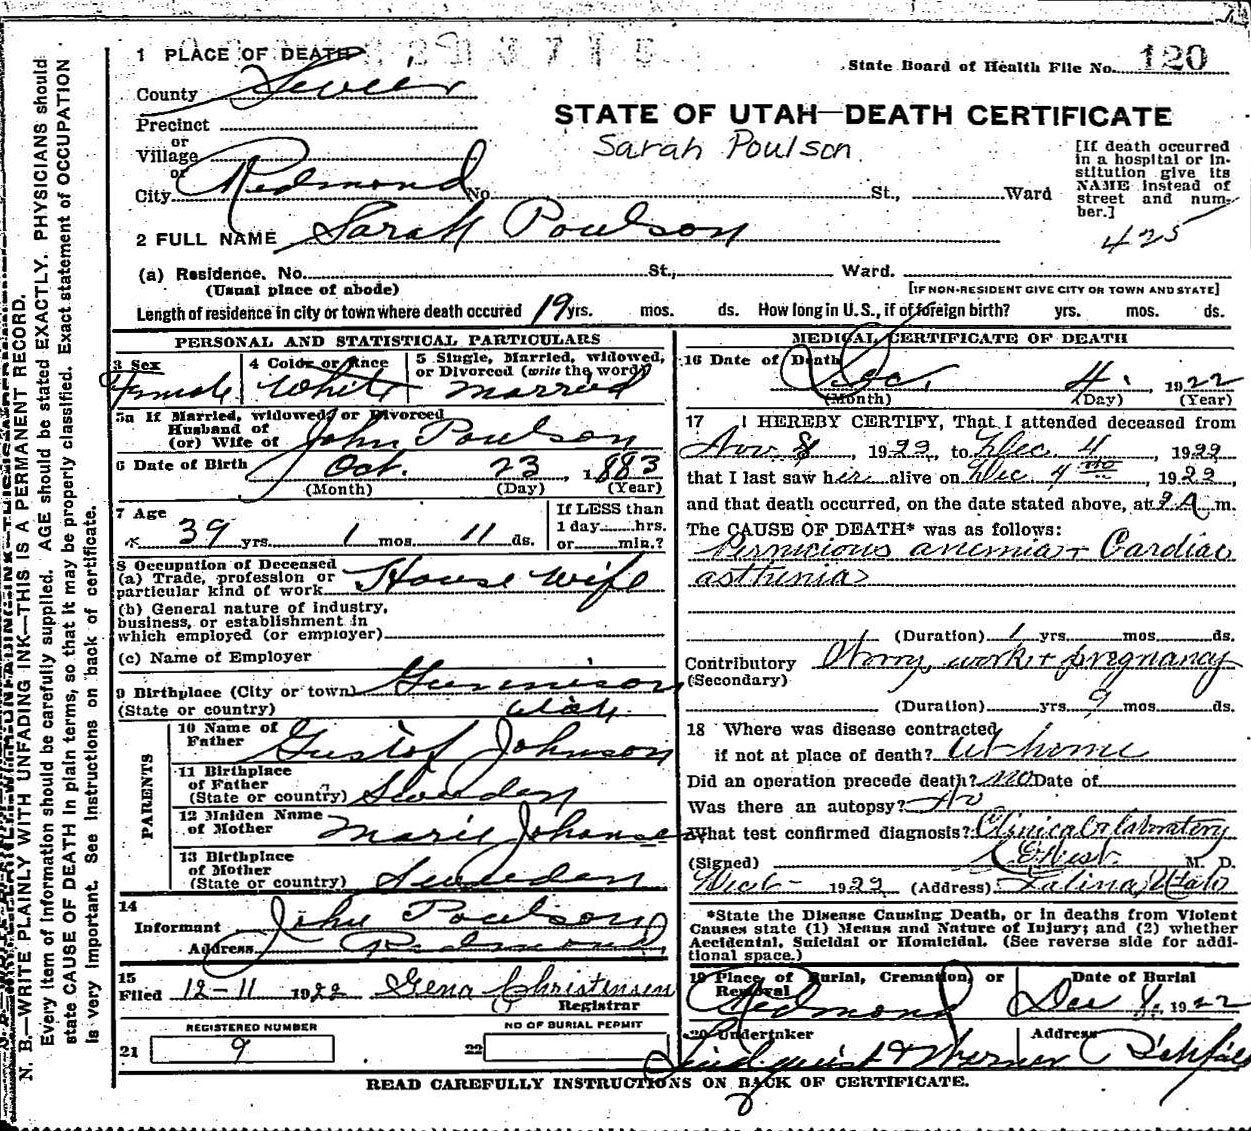 1 PLACE OF DEATH
State Board of Health File No. 120
County Sevier
STATE OF UTAH—DEATH CERTIFICATE
Precinct
or
Village
or
City Redmond No. St., Ward
Sarah Poulson
[If death occurred
in a hospital or in-
stitution give its
NAME instead of
street and num-
ber.]
425
2 FULL NAME Sarah Poulson
(a) Residence. No. St., Ward.
(Usual place of abode)
[IF NON-RESIDENT GIVE CITY OR TOWN AND STATE]
Length of residence in city or town where death occured 19 yrs. mos. ds. How long in U. S., if of foreign birth? yrs. mos. ds.
PERSONAL AND STATISTICAL PARTICULARS
3 Sex
Female
4 Color or Race
White
5 Single, Married, widowed,
or Divorced (write the word)
married
5a If Married, widowed, or Divorced
Husband of
(or) Wife of John Poulson
6 Date of Birth Oct. 23, 1883
(Month) (Day) (Year)
7 Age
39 yrs. 1 mos. 11 ds.
If LESS than
1 day hrs.
or min.?
8 Occupation of Deceased
(a) Trade, profession or
particular kind of work House wife
(b) General nature of industry,
business, or establishment in
which employed (or employer)
(c) Name of Employer
9 Birthplace (City or town) Gunnison
(State or country) Utah.
PARENTS
10 Name of
Father Gustof Johnson
11 Birthplace
of Father
(State or country) Sweden
12 Maiden Name
of Mother Marie Johansen
13 Birthplace
of Mother
(State or country) Sweden
14
Informant John Poulson
Address Redmond
15
Filed 12-11 1922 Gena Christensen
Registrar
REGISTERED NUMBER
21 9
NO OF BURIAL PERMIT
22
MEDICAL CERTIFICATE OF DEATH
16 Date of Death
Dec. 4, 1922
(Month) (Day) (Year)
17 I HEREBY CERTIFY, That I attended deceased from
Nov 8, 1922, to Dec. 4, 1922
that I last saw her alive on Dec. 4, 1922,
and that death occurred, on the date stated above, at 9 A m.
The CAUSE OF DEATH* was as follows:
Pernicious anemia + Cardiac
asthenia
(Duration) 1 yrs. mos. ds.
Contributory Worry, work + pregnancy
(Secondary)
(Duration) yrs. 9 mos. ds.
18 Where was disease contracted
if not at place of death? at home
Did an operation precede death? no Date of
Was there an autopsy? No
What test confirmed diagnosis? Clinical & laboratory
(Signed) West. M. D.
1922 (Address) Salina, Utah
*State the Disease Causing Death, or in deaths from Violent
Causes state (1) Means and Nature of Injury; and (2) whether
Accidental, Suicidal or Homicidal. (See reverse side for addi-
tional space.)
19 Place of Burial, Cremation, or
Removal
Redmond
Date of Burial
Dec 8, 1922
20 Undertaker
Lindquist & Warner
Address
Richfield
READ CAREFULLY INSTRUCTIONS ON BACK OF CERTIFICATE.
N. B.—WRITE PLAINLY WITH UNFADING INK—THIS IS A PERMANENT RECORD.
Every item of information should be carefully supplied. AGE should be stated EXACTLY. PHYSICIANS should
state CAUSE OF DEATH in plain terms, so that it may be properly classified. Exact statement of OCCUPATION
is very important. See instructions on back of certificate.